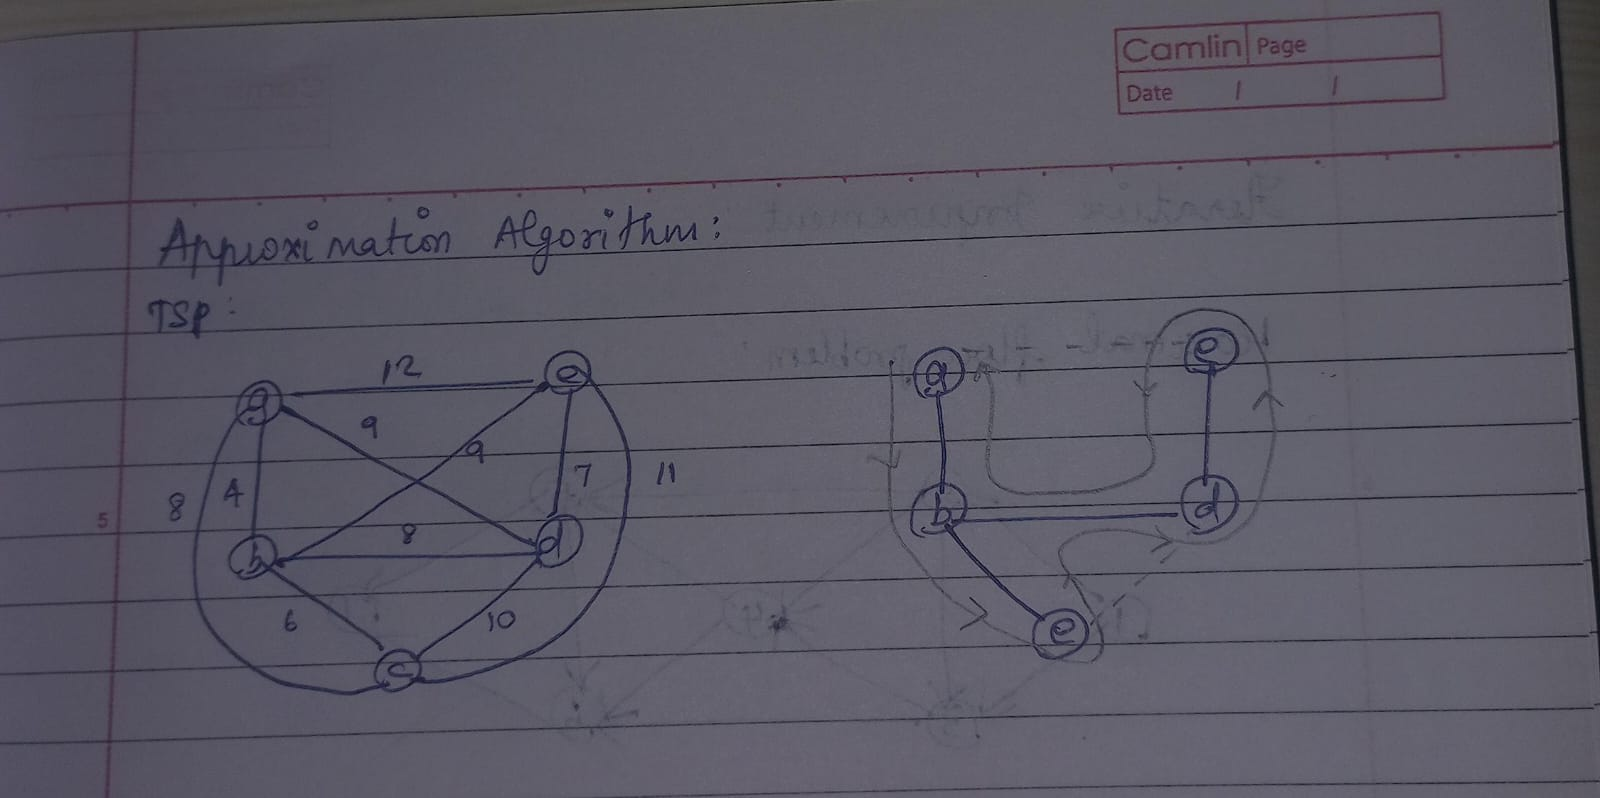 Camlin Page
Date / /
Approximation Algorithm:
TSP:
12
a e
9
9
8 4 7 11
8
b d
6 10
c
a e
b d
e
5